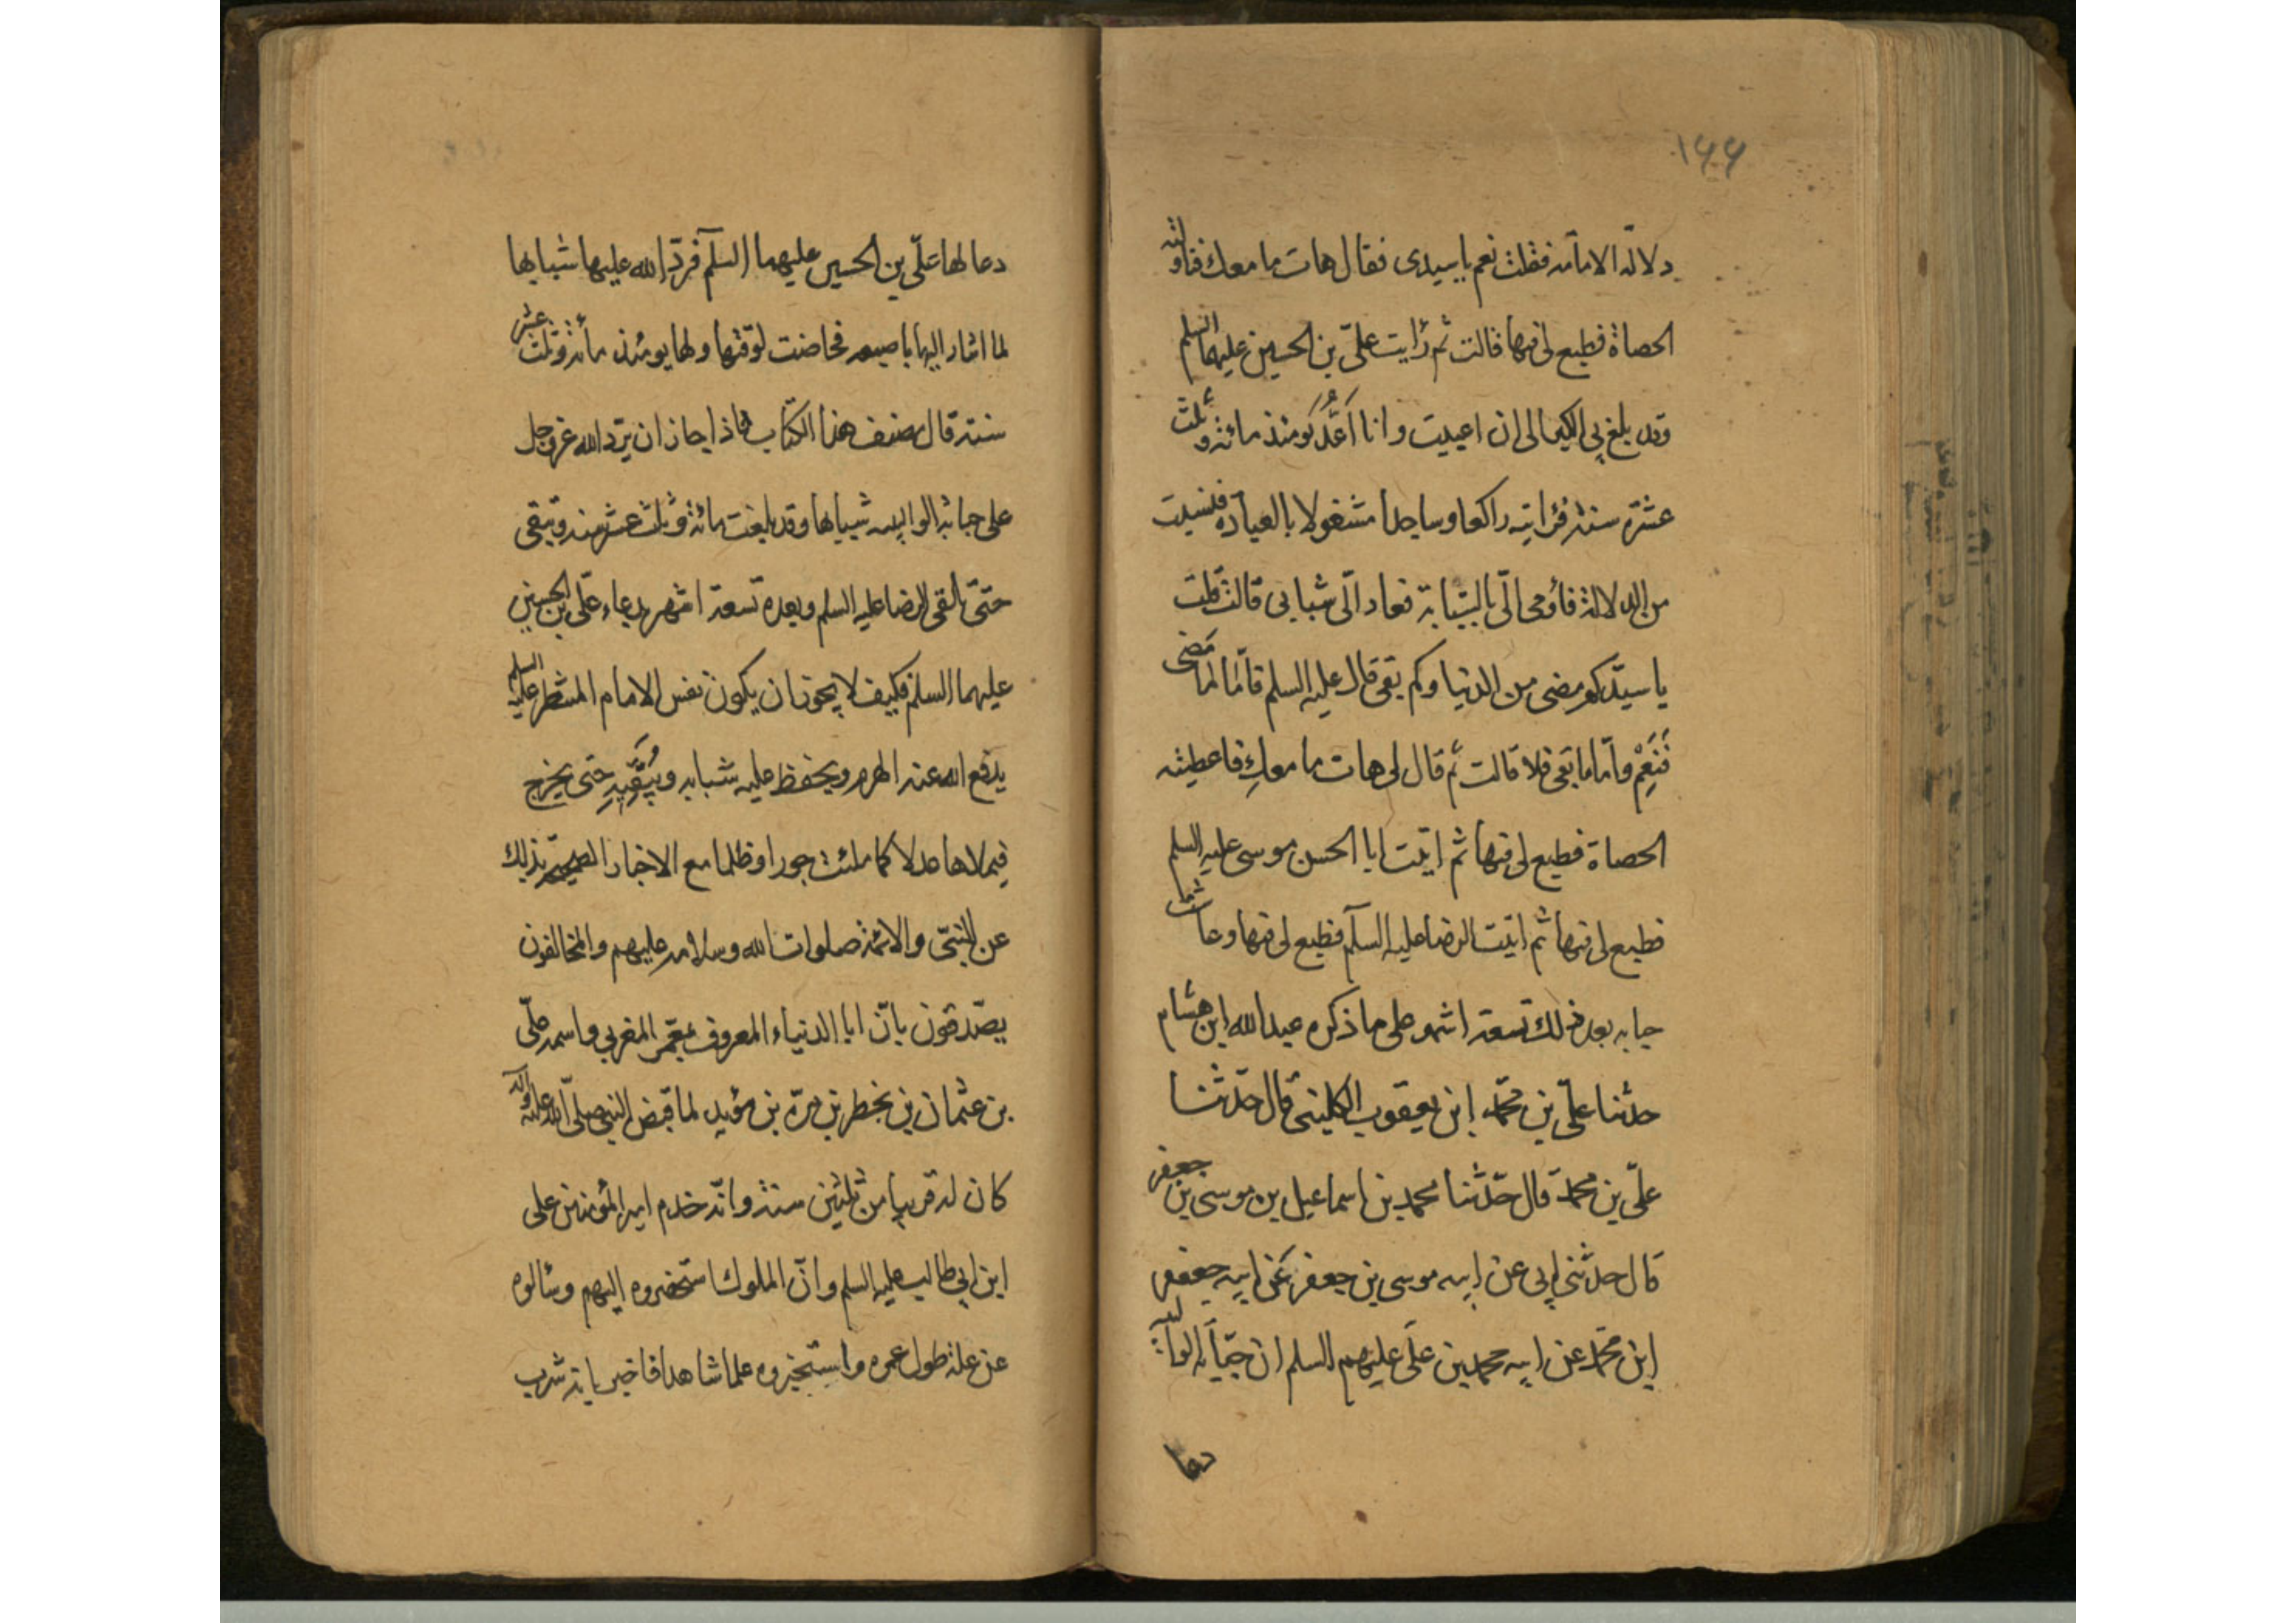 ۱۶۶
دلالة الامامة فقلت نعم يا سيدى فقال هات ما معك فناولته
الحصاة فطبع لى فيها قالت ثم رايت علىّ بن الحسين عليهما السلم
وقد بلغ بى الكبر الى ان اعييت وانا اَعُدُّ يومئذ مائة وثلث
عشرة سنة فرايته راكعا وساجدا مشغولا بالعبادة فيئست
من الدلالة فأومى الىّ بالسبّابة فعاد الىّ شبابى قالت قلت
يا سيّدى كم مضى من الدنيا وكم بقى قال عليه السلم فامّا لما مَضى
فَنَعَمْ وامّا ما بقى فلا قالت ثم قال لى هات ما معكِ فاعطيته
الحصاة فطبع لى فيها ثم اتيت ابا الحسن موسى عليه السلم
فطبع لى فيها ثم اتيت الرضا عليه السلم فطبع لى فيها وعاشت
حبابه بعد ذلك تسعة اشهر على ما ذكره عبدالله ابن هشام
حدثنا علىّ بن محمّد ابن يعقوب الكلينى قال حدّثنا
علىّ بن محمد قال حدّثنا محمد بن اسماعيل بن موسى بن جعفر
قال حدّثنى ابى عن ابيه موسى بن جعفر عَن ابيه جعفر
ابن محمّد عن ابيه محمد بن علىّ عليهم السلم ان حبّابة الوالبيه
دعا
دعا لها علىّ بن الحسين عليهما السلم فردّ الله عليها شبابها
لما اشار اليها باصبعه فحاضت لوقتها ولها يومئذ مأئة وثلث عشر
سنة قال مصنف هذا الكتاب فاذا جاز ان يردّ الله عز وجل
على حبابة الوالبيه شبابها وقد بلغت مائة وثلث عشر سنة وتبقى
حتىّ تلقى الرضا عليه السلم وبعده تسعة اشهر بدعاء علىّ بن الحسين
عليهما السلم فكيف لا يجوز ان يكون نفس الامام المنتظر عليه السلم
يدفع الله عنه الهرم ويحفظ عليه شبابه ويُبَقّيهِ حتى يخرج
فيملاها عدلا كما ملئت جورا وظلما مع الاخبار الصحيحة بذلك
عن النبىّ والائمة صلوات الله وسلامه عليهم والمخالفون
يصّدقون بانّ ابا الدنياء المعروف بمعّمر المغربى واسمه علىّ
بن عثمان بن خطر بن مرّه بن مؤيد لما قبض النبى صلىّ الله عليه واله
كان له قريبا من ثلثين سنة وانّه خدم امير المؤمنين على
ابن ابى طالب عليه السلم وانّ الملوك استحضروه اليهم وسألوه
عن علة طول عمره واستخبروه عما شاهد فاخبر بانه شرب